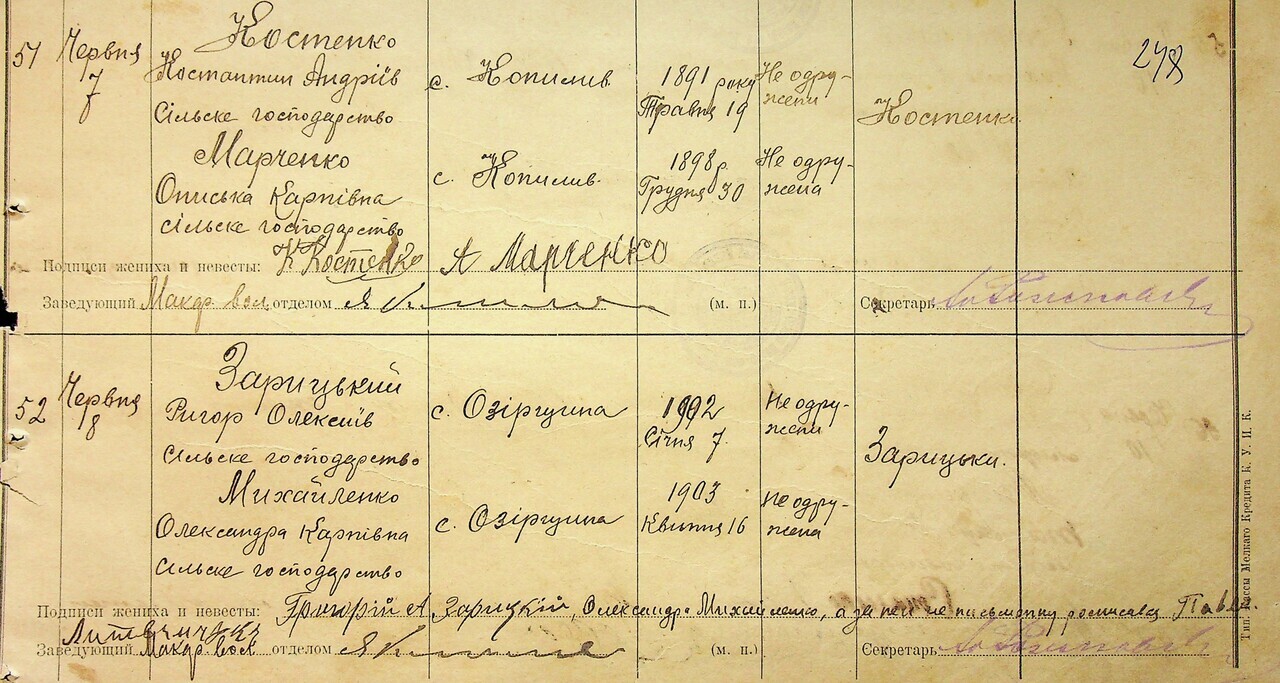 248
51 Червня 7
Костенко
Костантин Андріїв
Сільське господарство
с. Копилив
1891 року
Травня 19
Не одру-
жени
Костенко
Марченко
Описька Карпівна
сільске господарство
с. Копилив
1898 р.
Грудня 30
Не одру-
жена
Подписи жениха и невесты: К Костенко А Марченко
Заведующий Макар. вол. отделом (м. п.) Секретарь
52 Червня 8
Зарицький
Ригор Олексіїв
сільске господарство
с. Озірщина
1902
Січня 7
Не одру-
жени
Зарицьки.
Михайленко
Олександра Карпівна
сільске господарство
с. Озірщина
1903
Квитня 16
Не одру-
жена
Подписи жениха и невесты: Григорій А. Зарицкій, Олександра Михайленко, а за неи не письменну росписавсь Павло
Заведующий Макар. вол. отделом (м. п.) Секретарь
Тип. Кассы Мелкаго Кредита К. У. И. К.